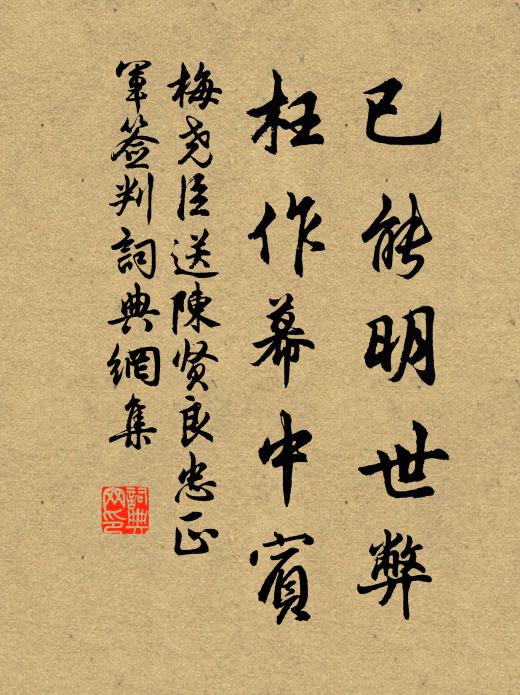 已能明世弊
枉作幕中賓
梅尧臣送陳贤良忠正
軍簽判詞典網集
詞典
网印